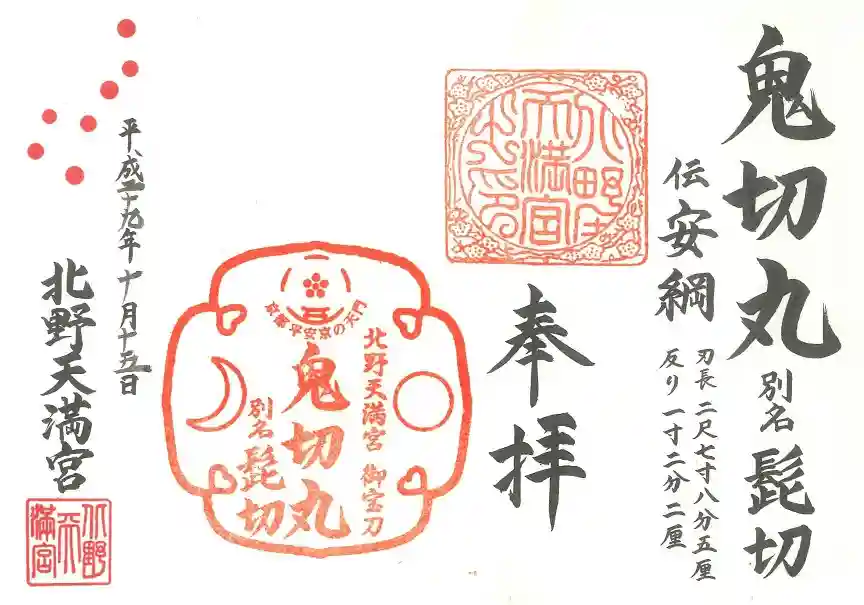 鬼切丸 別名 髭切
伝 安綱
刃長 二尺七寸八分五厘
反り 一寸二分二厘
奉拝
北野天満宮 御宝刀
鬼切丸
別名 髭切
平安京の天門
平成二十九年十月十五日
北野天満宮
北野
天
満宮